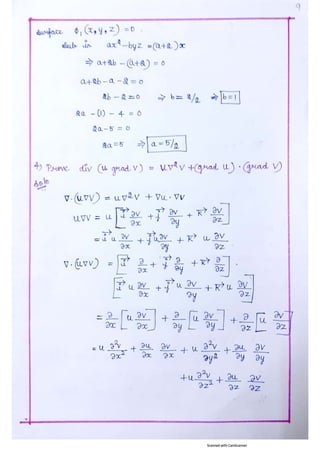 9
surface Φ₁(x, y, z) = 0.
sub in ax² - byz = (a+2)x
⇒ a + 2b - (a+2) = 0
a + 2b - a - 2 = 0
2b - 2 = 0 ⇒ b = 2/2 ⇒ b = 1
2a - (1) - 4 = 0
2a - 5 = 0
2a = 5 ⇒ a = 5/2
4) Prove div (u grad v) = u∇²v + (grad u) · (grad v)
Solo
∇·(u∇v) = u∇²v + ∇u·∇v
u∇v = u [i⃗ ∂v/∂x + j⃗ ∂v/∂y + k⃗ ∂v/∂z]
= i⃗ u ∂v/∂x + j⃗ u ∂v/∂y + k⃗ u ∂v/∂z
∇·(u∇v) = [i⃗ ∂/∂x + j⃗ ∂/∂y + k⃗ ∂/∂z] ·
[i⃗ u ∂v/∂x + j⃗ u ∂v/∂y + k⃗ u ∂v/∂z]
= ∂/∂x [u ∂v/∂x] + ∂/∂y [u ∂v/∂y] + ∂/∂z [u ∂v/∂z]
= u ∂²v/∂x² + ∂u/∂x ∂v/∂x + u ∂²v/∂y² + ∂u/∂y ∂v/∂y
+ u ∂²v/∂z² + ∂u/∂z ∂v/∂z
Scanned with CamScanner